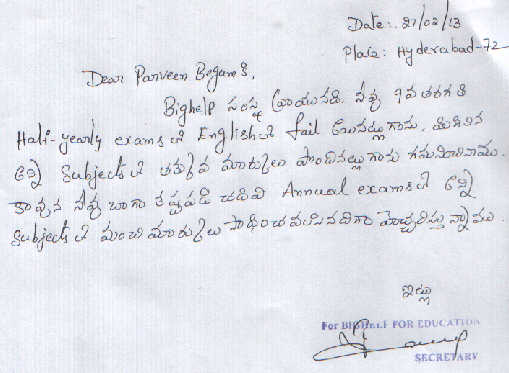 Date: 21/02/13
Place: Hyderabad-72
Dear Parveen Begum కి,
Bighelp సంస్థ వ్రాయునది. నీవు 9వ తరగతి
Half-yearly exams లో English లో fail అయినట్లుగాను, మిగిలిన
అన్ని Subjects లో తక్కువ మార్కులు పొందినట్లుగాను గమనించినాము.
కావున నీవు బాగా కష్టపడి చదివి Annual exams లో అన్ని
Subjects లో మంచి మార్కులు సాధించవలసినదిగా హెచ్చరిస్తున్నాము.
ఇట్లు
For BIGHELP FOR EDUCATION
SECRETARY